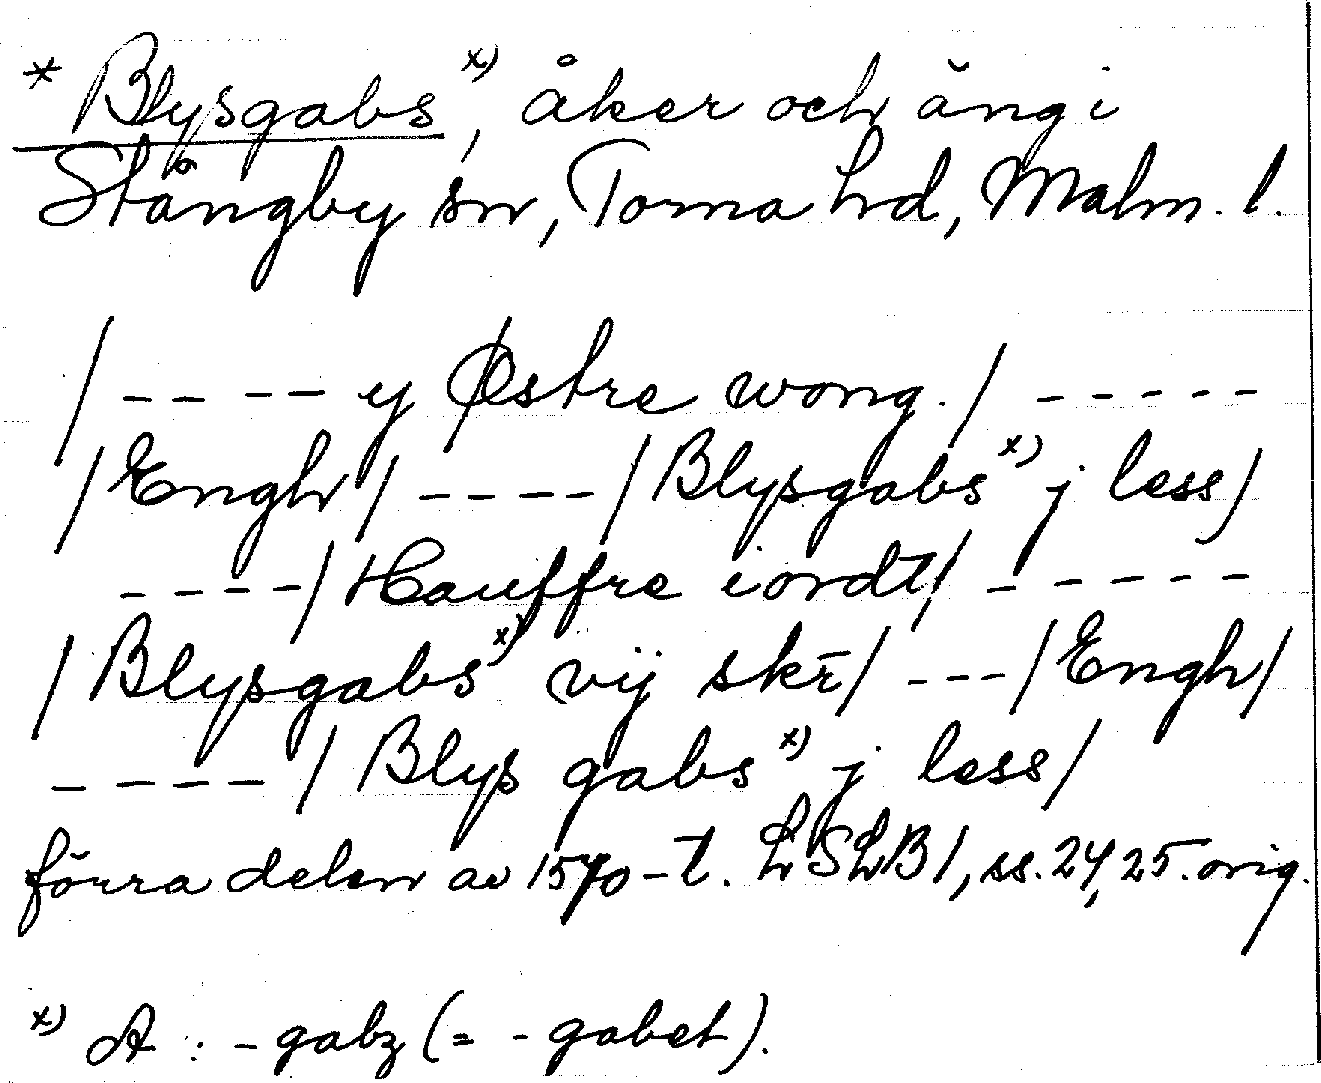 * Blysgabs x), åker och äng i
Stångby sn, Torna hd, Malm. l.
/ ---- y Østre wong. / -----
/ Engh / ---- / Blysgabs x) j less /
---- / Hauffre iordt / -----
/ Blysgabs x) vij skr̄ / --- / Engh /
---- / Blys gabs x) j less /
förra delen av 1570-t. LSLB 1, ss. 24, 25. orig.
x) A : -gabz (= -gabet).